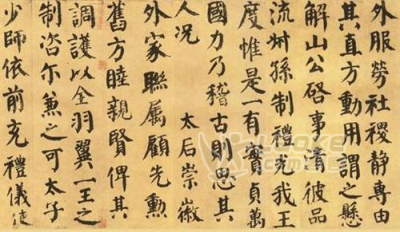 外服勞社稷靜專由
其直方動用謂之懸
解山公啓事清彼品
流叔孫制禮光我王
度惟是一有實貞萬
國力乃稽古則思其
人況 太后崇徽
外家聯屬顧先勳
舊方睦親賢俾其
調護以全羽翼一王之
制咨尔兼之可太子
少師依前充禮儀使